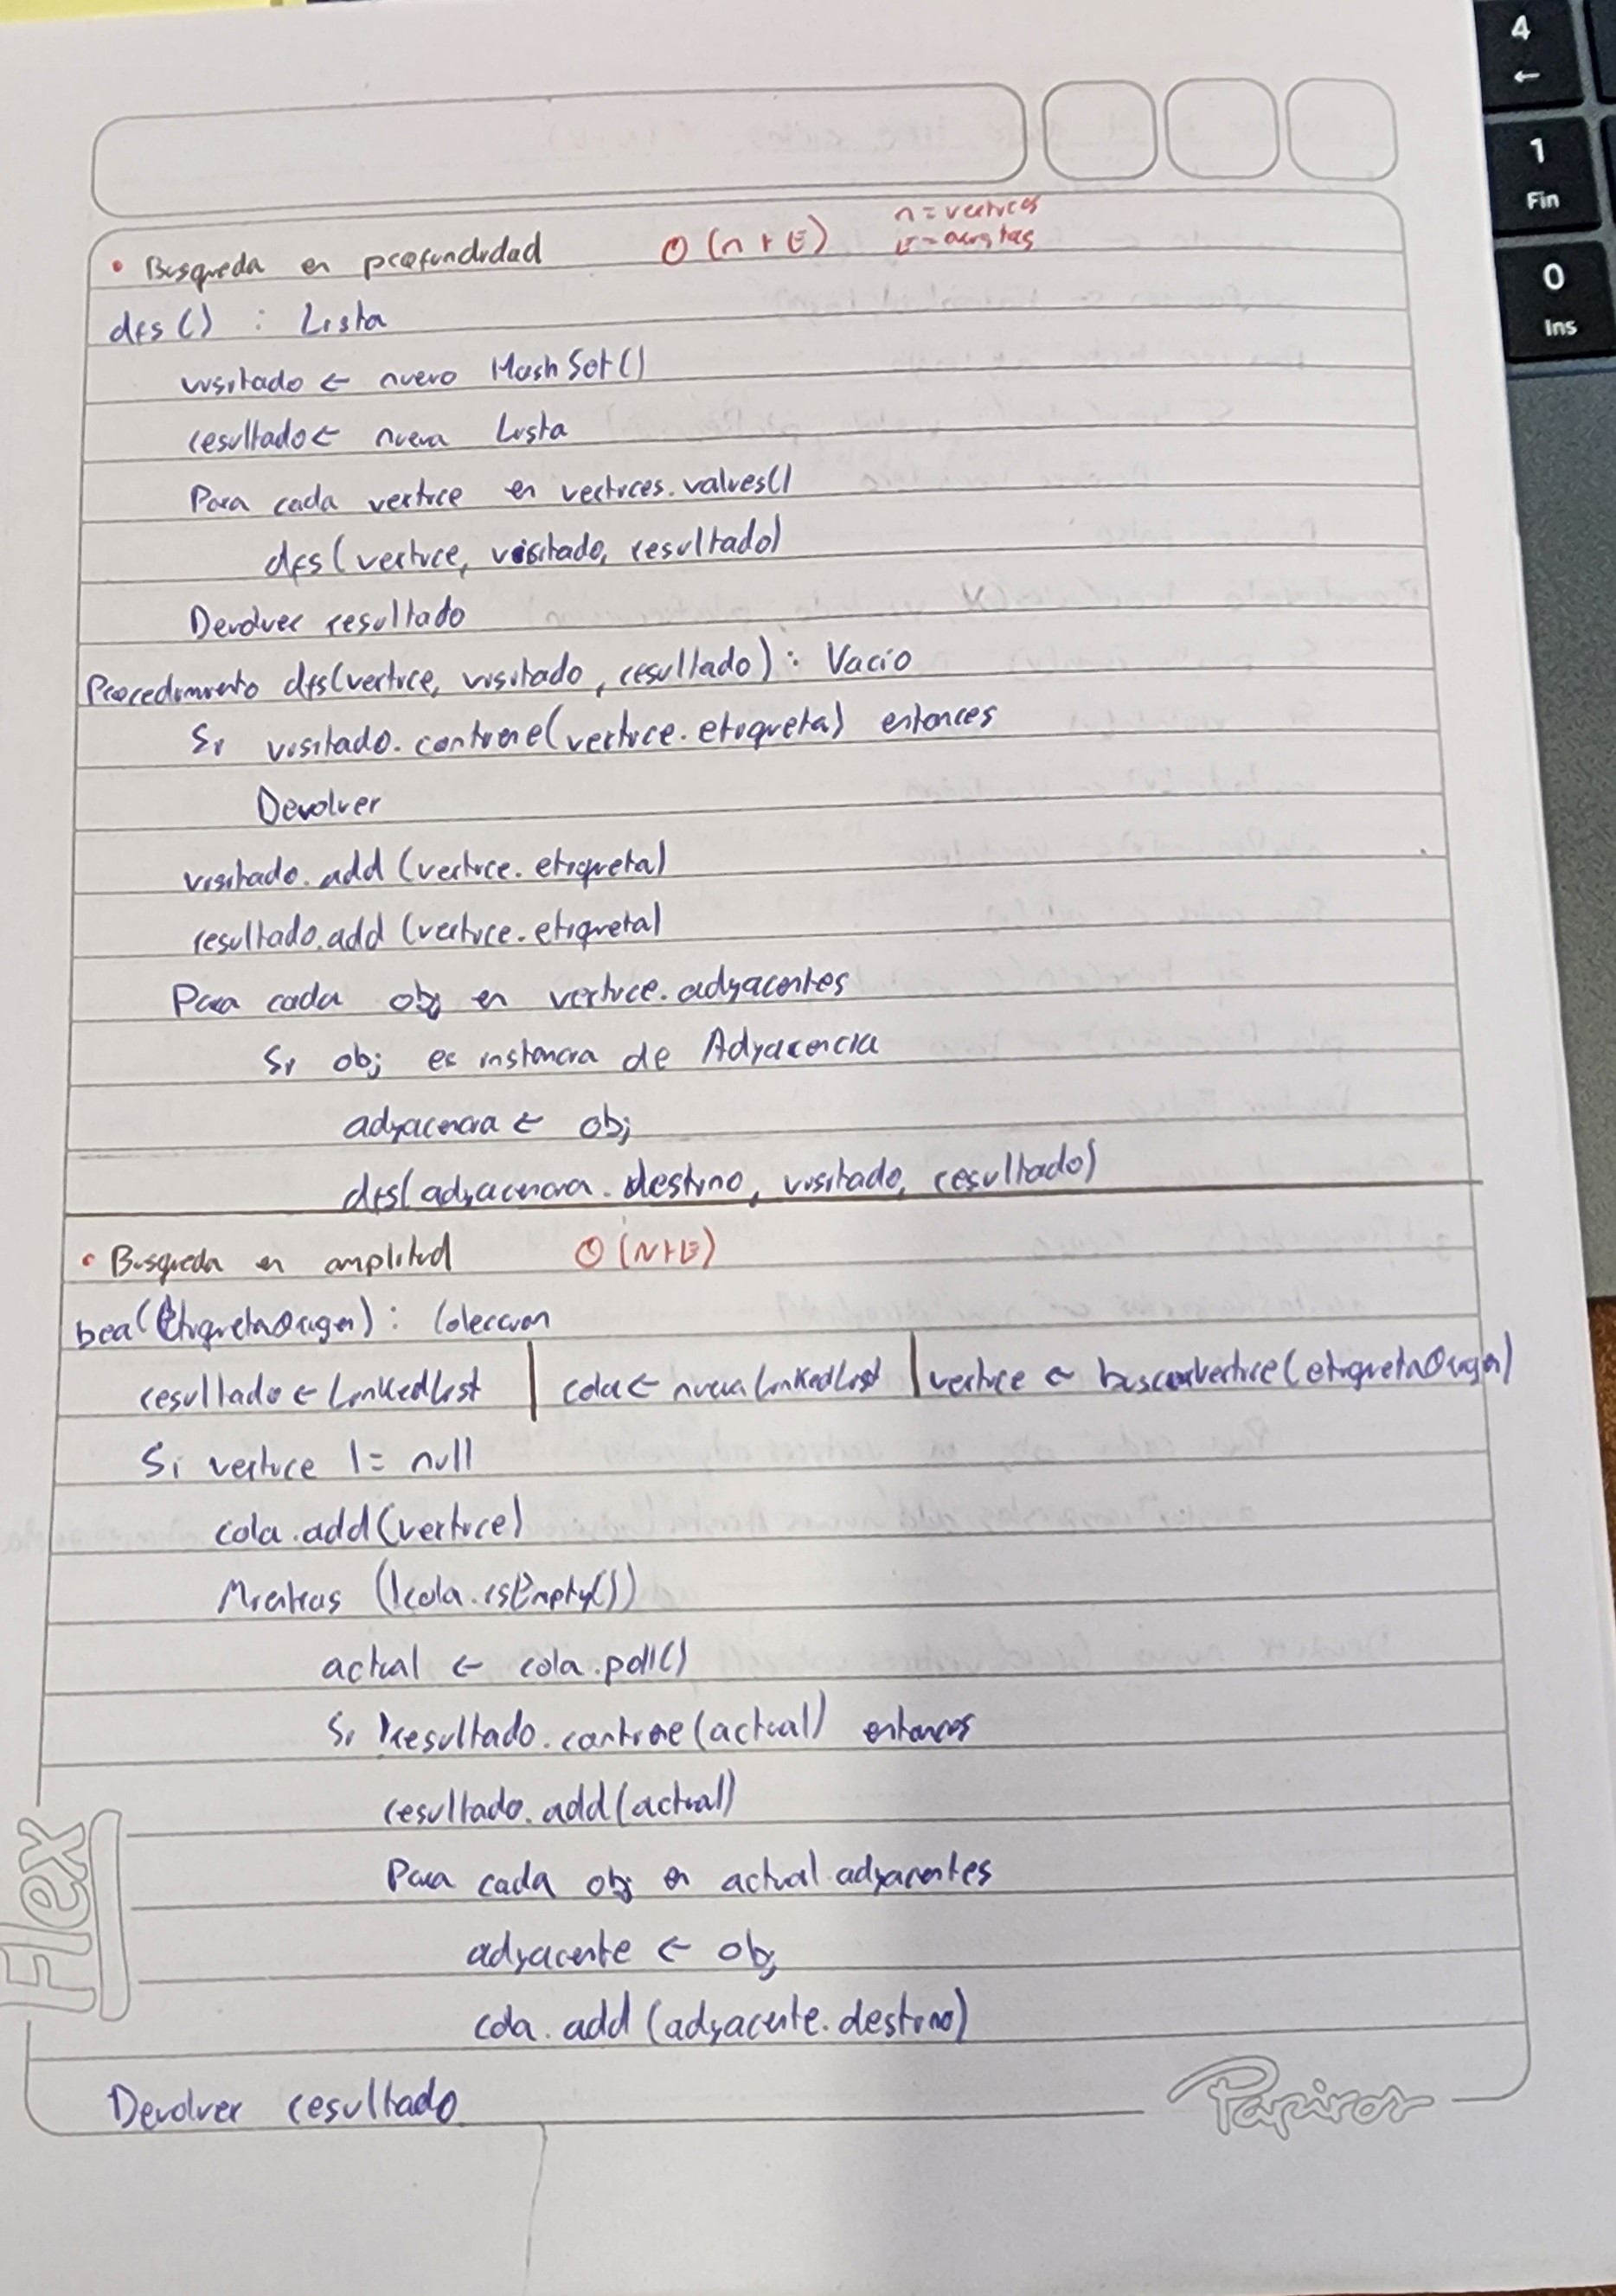 4
←
1
Fin
0
Ins
• Busqueda en profundidad O(n+E) n = vertices
E = aristas
dfs() : Lista
visitado ← nuevo HashSet()
resultado ← nueva Lista
Para cada vertice en vertices.values()
dfs(vertice, visitado, resultado)
Devolver resultado
Procedimiento dfs(vertice, visitado, resultado) : Vacio
Si visitado.contiene(vertice.etiqueta) entonces
Devolver
visitado.add(vertice.etiqueta)
resultado.add(vertice.etiqueta)
Para cada obj en vertice.adyacentes
Si obj es instancia de Adyacencia
adyacencia ← obj
dfs(adyacencia.destino, visitado, resultado)
• Busqueda en amplitud O(N+E)
bea(EtiquetaOrigen) : Coleccion
resultado ← LinkedList | cola ← nueva LinkedList | vertice ← buscarVertice(etiquetaOrigen)
Si vertice != null
cola.add(vertice)
Mientras (!cola.isEmpty())
actual ← cola.poll()
Si !resultado.contiene(actual) entonces
resultado.add(actual)
Para cada obj en actual.adyacentes
adyacente ← obj
cola.add(adyacente.destino)
Devolver resultado
Flex
Papiros